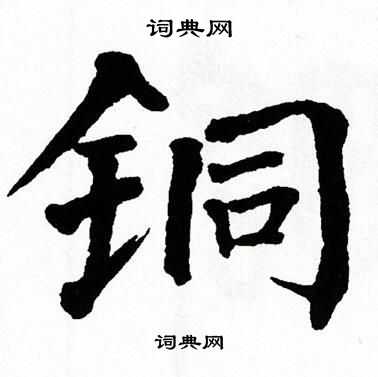 词典网
铜
词典网